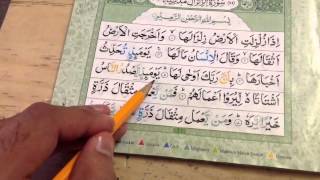 سورة الزلزال مدنية
بسم الله الرحمن الرحيم
اذا زلزلت الارض زلزالها ۝ واخرجت الارض
اثقالها ۝ وقال الانسان مالها ۝ يومئذ تحدث
اخبارها ۝ بان ربك اوحى لها ۝ يومئذ يصدر الناس
اشتاتا ليروا اعمالهم ۝ فمن يعمل مثقال ذرة
خيرا يره ۝ ومن يعمل مثقال ذرة